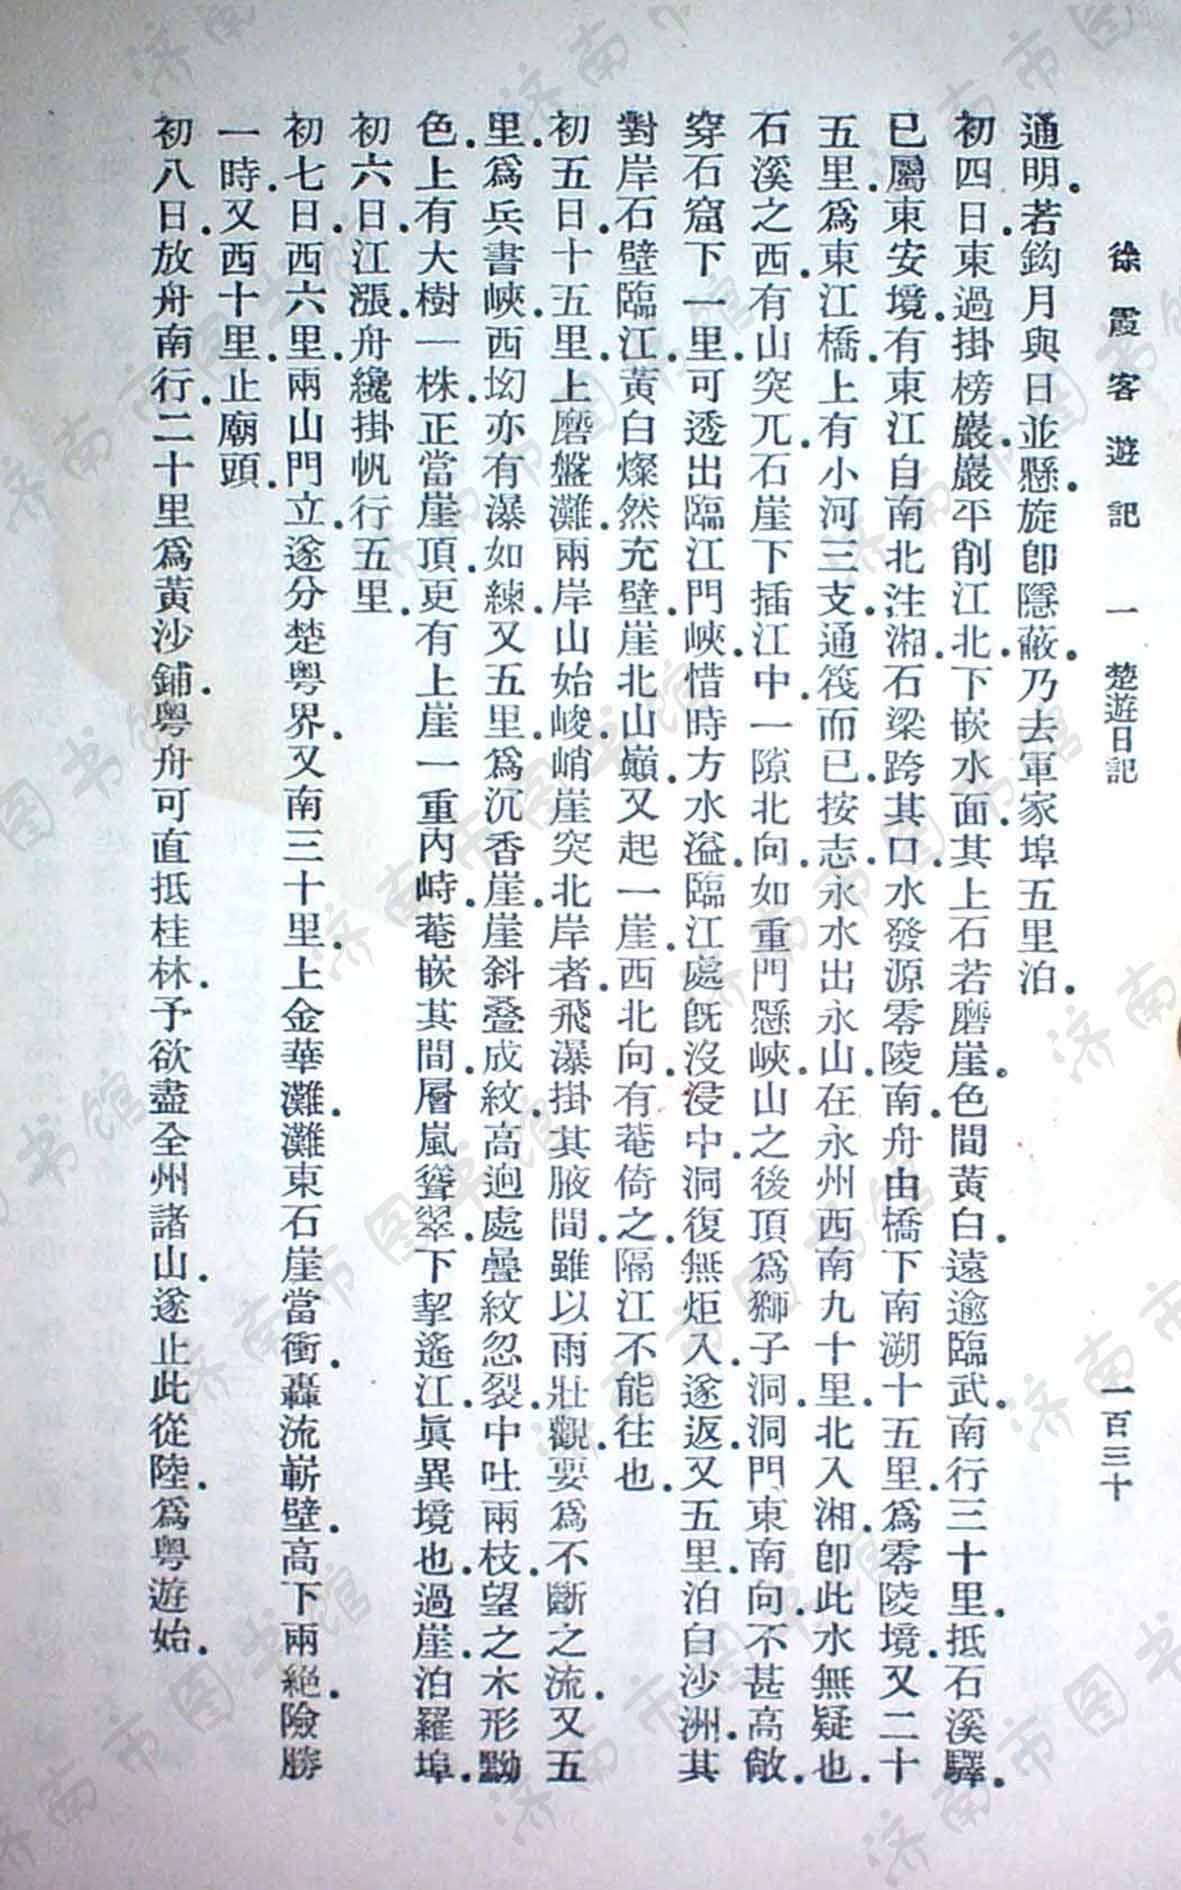 徐霞客遊記　一　楚遊日記　一百三十
通明．若鈎月與日並懸．旋卽隱蔽．乃去軍家埠五里泊．
初四日．東過掛榜巖．巖平削江北．下嵌水面．其上石若磨崖．色間黃白．遠逾臨武．南行三十里．抵石溪驛．
已屬東安境．有東江自南北注湘．石梁跨其口．水發源零陵南．舟由橋下南溯十五里．爲零陵境．又二十
五里．爲東江橋．上有小河三支．通筏而已．按志．永水出永山．在永州西南九十里．北入湘．卽此水無疑也．
石溪之西．有山突兀．石崖下插江中．一隙北向．如重門懸峽．山之後頂爲獅子洞．洞門東南向．不甚高敞．
穿石窟下一里．可透出臨江門峽．惜時方水溢．臨江處旣沒浸中．洞復無炬入．遂返．又五里．泊白沙洲．其
對岸石壁臨江．黃白燦然充壁．崖北山巔．又起一崖．西北向．有菴倚之．隔江不能往也．
初五日．十五里．上磨盤灘．兩岸山始峻峭．崖突北岸者．飛瀑掛其腋間．雖以雨壯觀．要爲不斷之流．又五
里．爲兵書峽．西坳亦有瀑如練．又五里．爲沉香崖．崖斜叠成紋．高逈處疊紋忽裂．中吐兩枝．望之木形黝
色．上有大樹一株．正當崖頂．更有上崖一重內峙．菴嵌其間．層嵐聳翠．下挈遙江．眞異境也．過崖．泊羅埠．
初六日．江漲．舟纔掛帆行五里．
初七日．西六里．兩山門立．遂分楚粵界．又南三十里．上金華灘．灘東石崖當衝．轟流嶄壁．高下兩絕．險勝
一時．又西十里．止廟頭．
初八日．放舟南行．二十里爲黃沙鋪．粵舟可直抵桂林．予欲盡全州諸山．遂止此從陸．爲粵遊始．